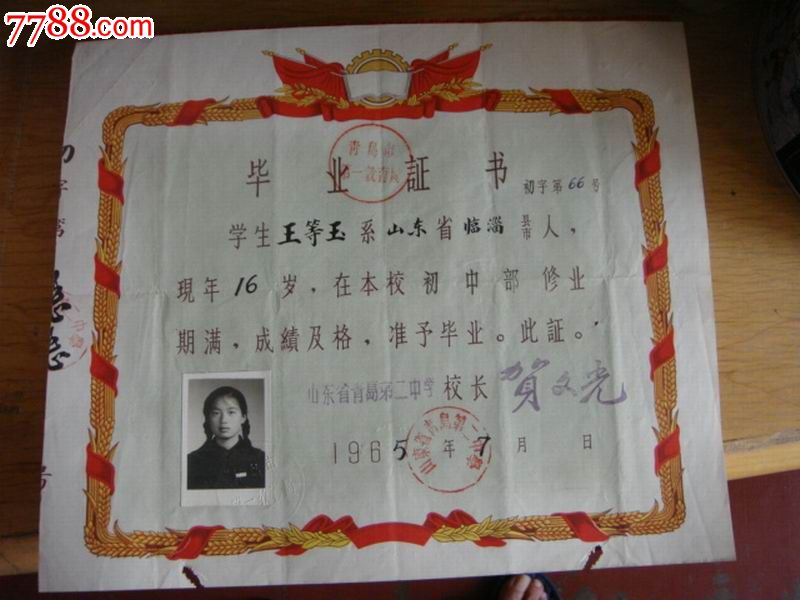 7788.com
青島市
毕业証书
初字第66号
学生王等玉系山东省临淄县市人，
現年16岁，在本校初中部修业
期满，成績及格，准予毕业。此証。
山东省青島第二中学 校长 贺文亮
1965年7月 日
山东省青島第二中學
初字第
号